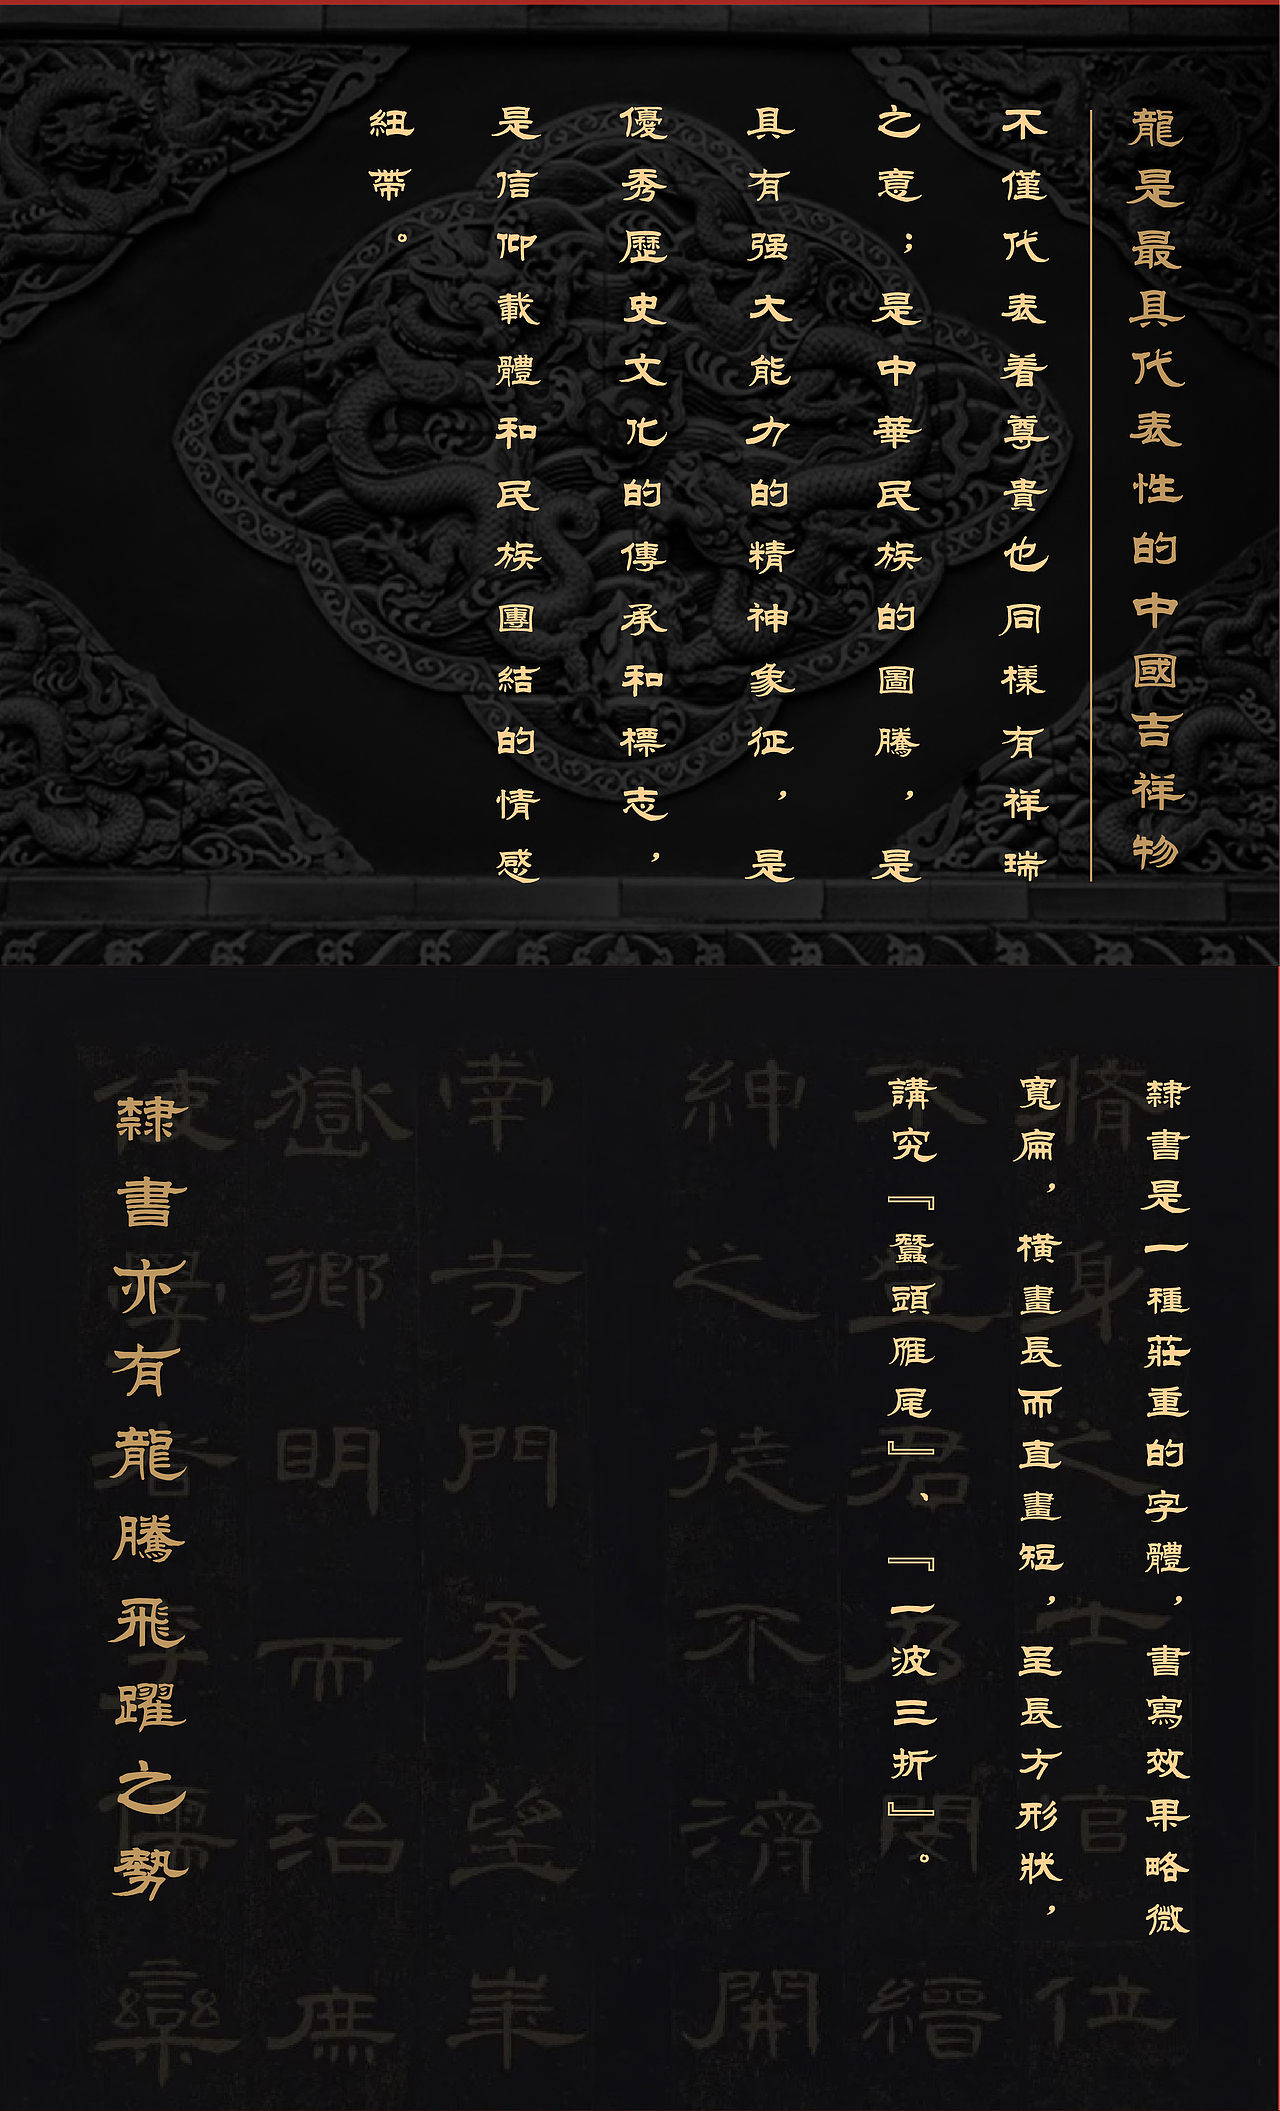 龍是最具代表性的中國吉祥物
不僅代表着尊貴也同樣有祥瑞
之意；是中華民族的圖騰，是
具有强大能力的精神象征，是
優秀歷史文化的傳承和標志，
是信仰載體和民族團結的情感
紐帶。
隸書是一種莊重的字體，書寫效果略微
寬扁，橫畫長而直畫短，呈長方形狀，
講究『蠶頭雁尾』、『一波三折』。
隸書亦有龍騰飛躍之勢